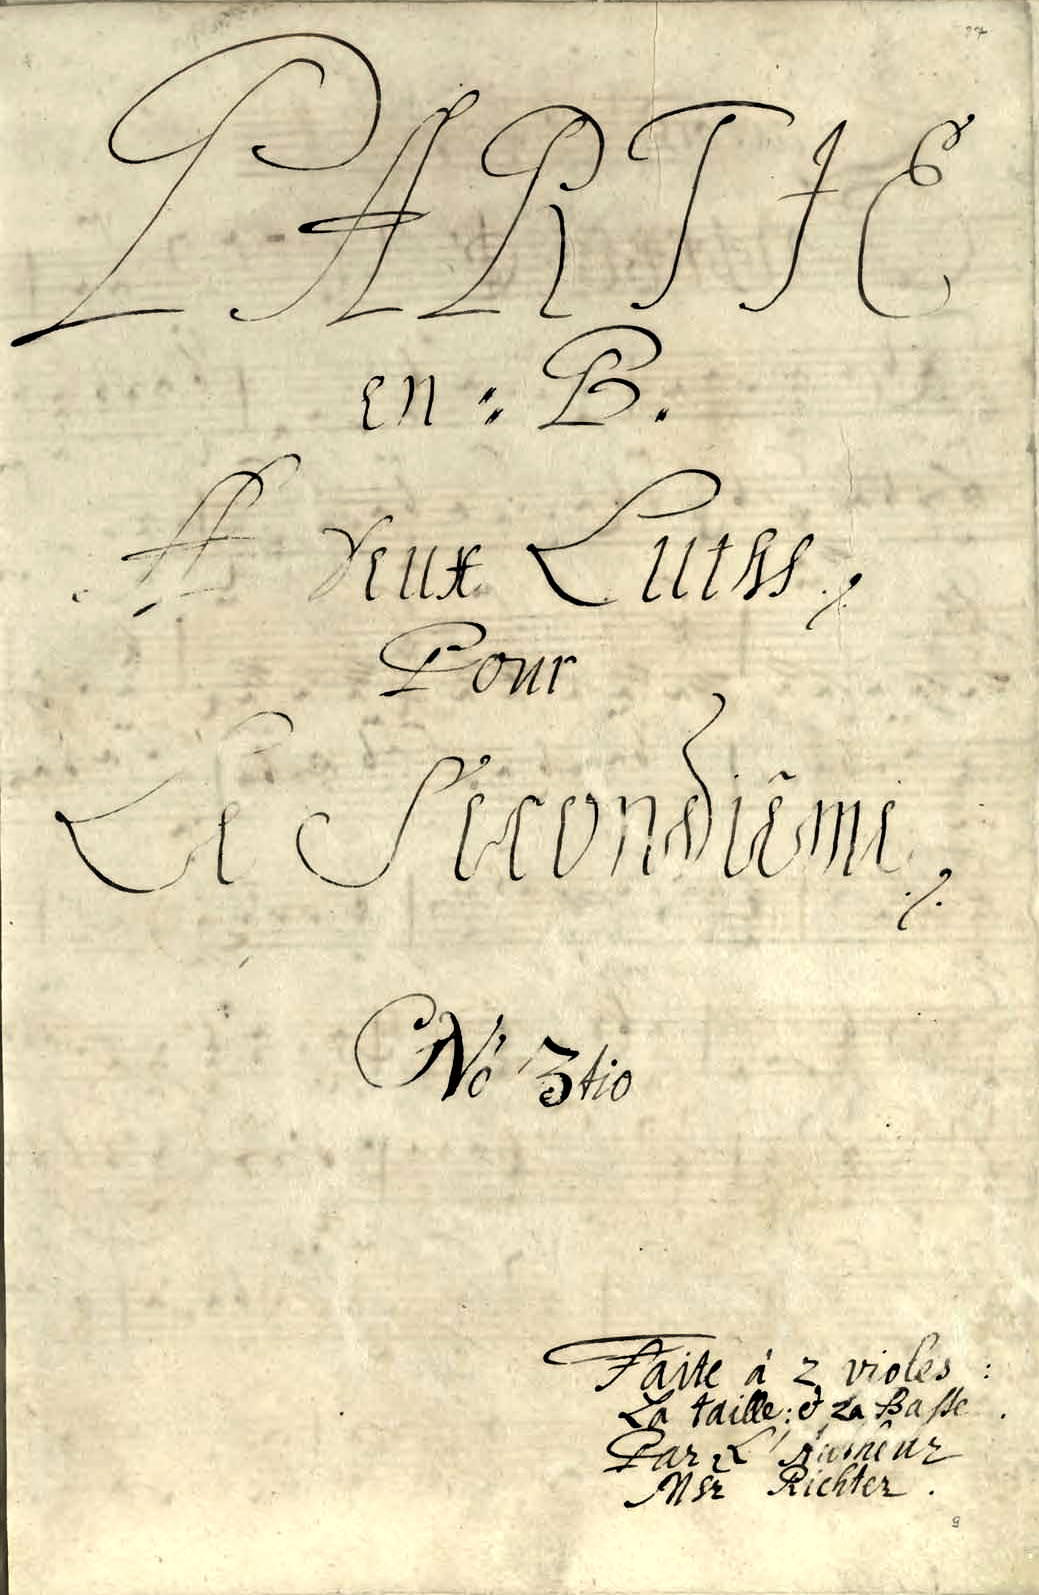 PARTIE
en: B.
A deux Luths ./.
Pour
Le Secondiême ./.
No 3tio
Faite á 2 violes :
La taille: et La Basse .
Par L'
Msr Richter .